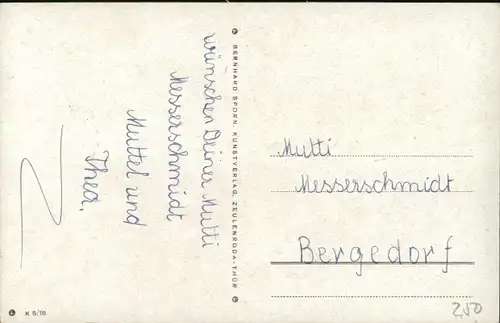 wünschen Deiner Mutti
Messerschmidt
Muttel und
Thea.
BERNHARD SPORN, KUNSTVERLAG, ZEULENRODA-THÜR
K 6/18
Mutti
Messerschmidt
Bergedorf
2,50